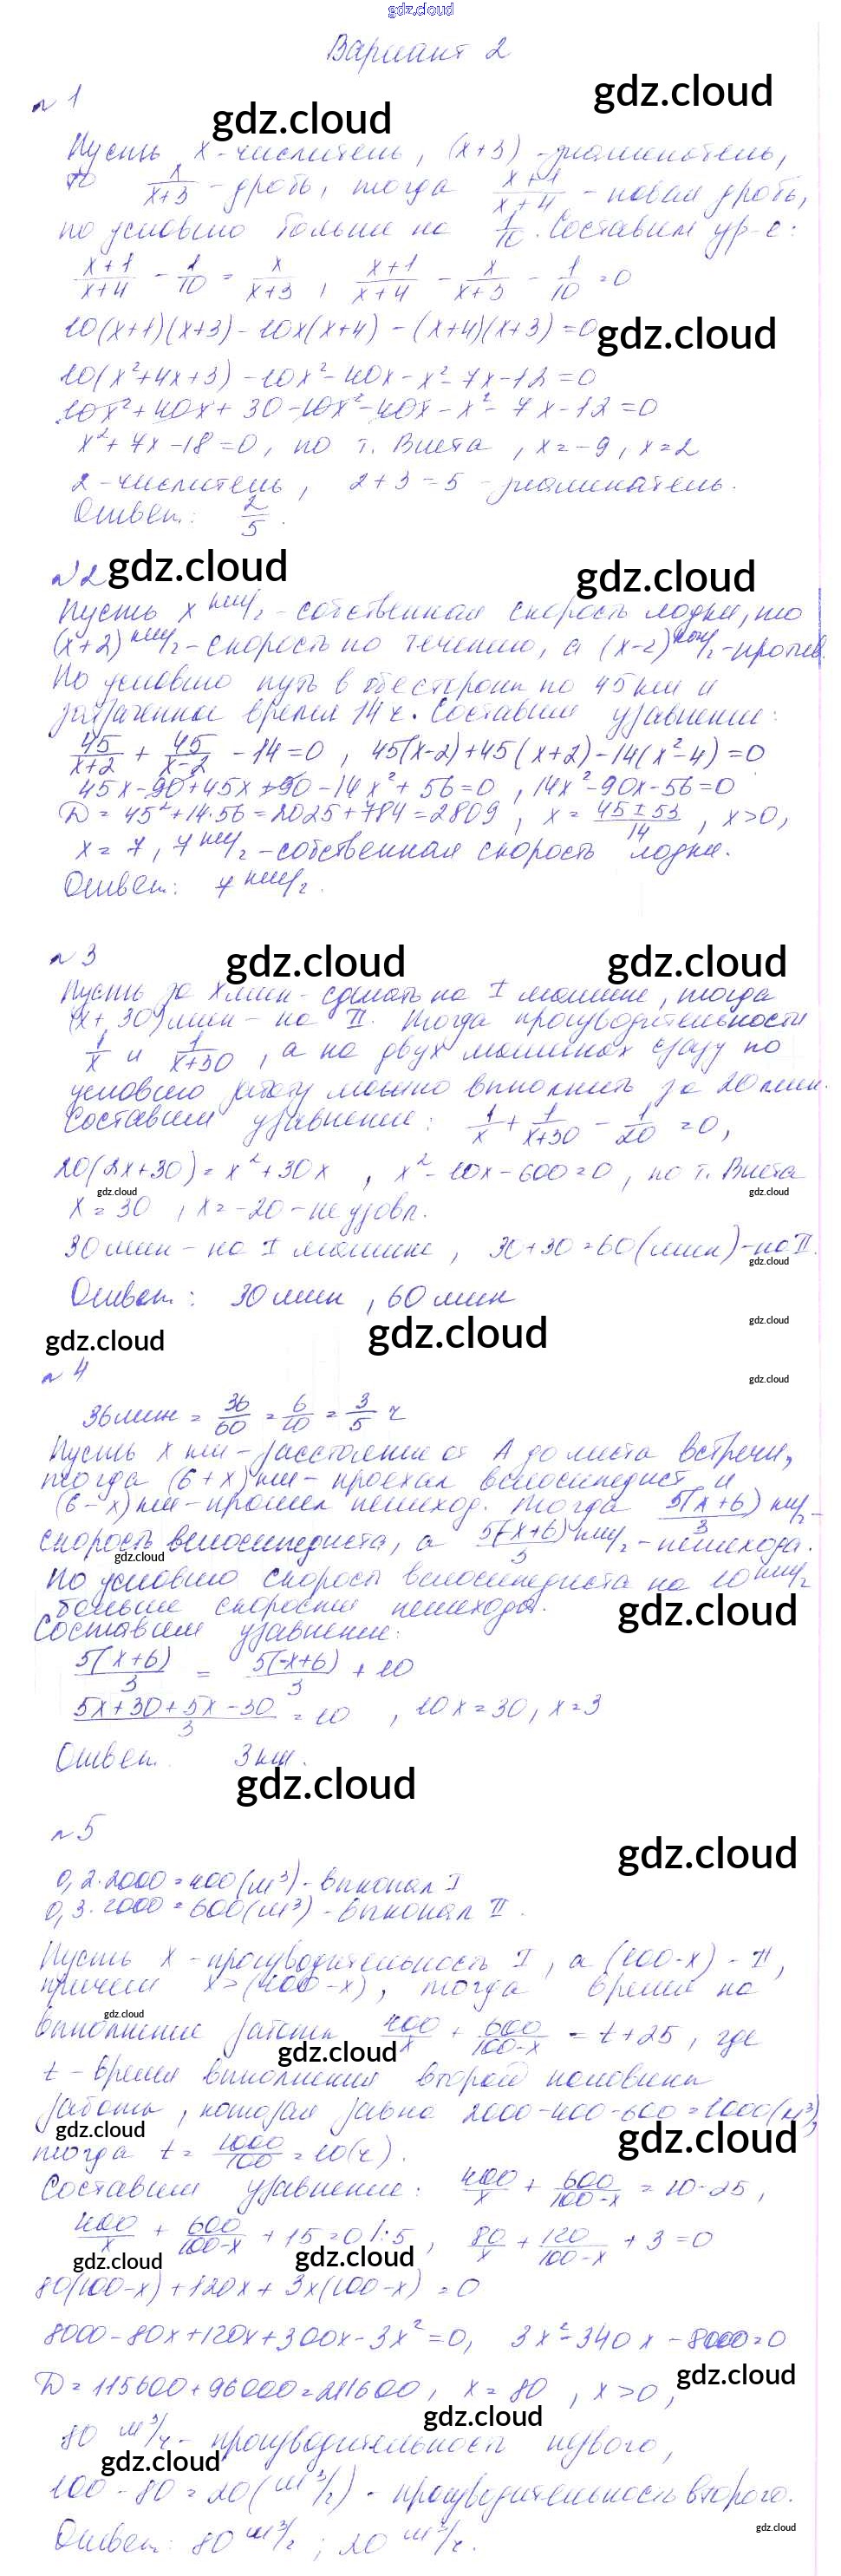 gdz.cloud
Вариант 2
gdz.cloud
n 1
gdz.cloud
Пусть x - числитель, (x+3) - знаменатель,
то x/(x+3) - дробь, тогда (x+1)/(x+4) - новая дробь,
по условию больше на 1/10. Составим ур-е:
(x+1)/(x+4) - 1/10 = x/(x+3), (x+1)/(x+4) - x/(x+3) - 1/10 = 0
10(x+1)(x+3) - 10x(x+4) - (x+4)(x+3) = 0
gdz.cloud
10(x²+4x+3) - 10x² - 40x - x² - 7x - 12 = 0
10x² + 40x + 30 - 10x² - 40x - x² - 7x - 12 = 0
x² + 7x - 18 = 0, по т. Виета, x = -9, x = 2
2 - числитель, 2+3 = 5 - знаменатель.
Ответ: 2/5.
n 2
gdz.cloud
gdz.cloud
Пусть x км/ч - собственная скорость лодки, то
(x+2) км/ч - скорость по течению, а (x-2) км/ч - против.
По условию путь в обе стороны по 45 км и
затраченное время 14 ч. Составим уравнение:
45/(x+2) + 45/(x-2) - 14 = 0, 45(x-2) + 45(x+2) - 14(x²-4) = 0
45x - 90 + 45x + 90 - 14x² + 56 = 0, 14x² - 90x - 56 = 0
D = 45² + 14·56 = 2025 + 784 = 2809, x = (45 ± 53)/14, x>0,
x = 7, 7 км/ч - собственная скорость лодки.
Ответ: 7 км/ч.
n 3
gdz.cloud
gdz.cloud
Пусть за x мин - сделать на I машине, тогда
(x+30) мин - на II. Тогда производительности
1/x и 1/(x+30), а на двух машинах сразу по
условию работу можно выполнить за 20 мин.
Составим уравнение: 1/x + 1/(x+30) - 1/20 = 0,
20(2x+30) = x² + 30x, x² - 10x - 600 = 0, по т. Виета
gdz.cloud
gdz.cloud
x = 30, x = -20 - не удовл.
30 мин - на I машине, 30+30 = 60 (мин) - на II.
gdz.cloud
Ответ: 30 мин, 60 мин
gdz.cloud
gdz.cloud
gdz.cloud
n 4
gdz.cloud
36 мин = 36/60 = 6/10 = 3/5 ч
Пусть x км - расстояние от A до места встречи,
тогда (6+x) км - проехал велосипедист и
(6-x) км - прошел пешеход. Тогда 5(x+6)/3 км/ч -
скорость велосипедиста, а 5(-x+6)/3 км/ч - пешехода.
gdz.cloud
По условию скорость велосипедиста на 10 км/ч
больше скорости пешехода.
gdz.cloud
Составим уравнение:
5(x+6)/3 = 5(-x+6)/3 + 10
(5x+30+5x-30)/3 = 10, 10x = 30, x = 3
Ответ: 3 км.
gdz.cloud
n 5
gdz.cloud
0,2·2000 = 400 (м³) - выкопал I
0,3·2000 = 600 (м³) - выкопал II.
Пусть x - производительность I, а (100-x) - II,
причем x > (100-x), тогда время на
gdz.cloud
выполнение работы 400/x + 600/(100-x) = t + 25, где
gdz.cloud
t - время выполнения второй половины
работы, которая равна 2000-400-600 = 1000 (м³),
gdz.cloud
gdz.cloud
тогда t = 1000/100 = 10 (ч).
Составим уравнение: 400/x + 600/(100-x) = 10 - 25,
400/x + 600/(100-x) + 15 = 0 |:5, 80/x + 120/(100-x) + 3 = 0
gdz.cloud
gdz.cloud
80(100-x) + 120x + 3x(100-x) = 0
8000 - 80x + 120x + 300x - 3x² = 0, 3x² - 340x - 8000 = 0
D = 115600 + 96000 = 211600, x = 80, x>0,
gdz.cloud
gdz.cloud
80 м³/ч - производительность первого,
gdz.cloud
100 - 80 = 20 (м³/ч) - производительность второго.
Ответ: 80 м³/ч; 20 м³/ч.
gdz.cloud